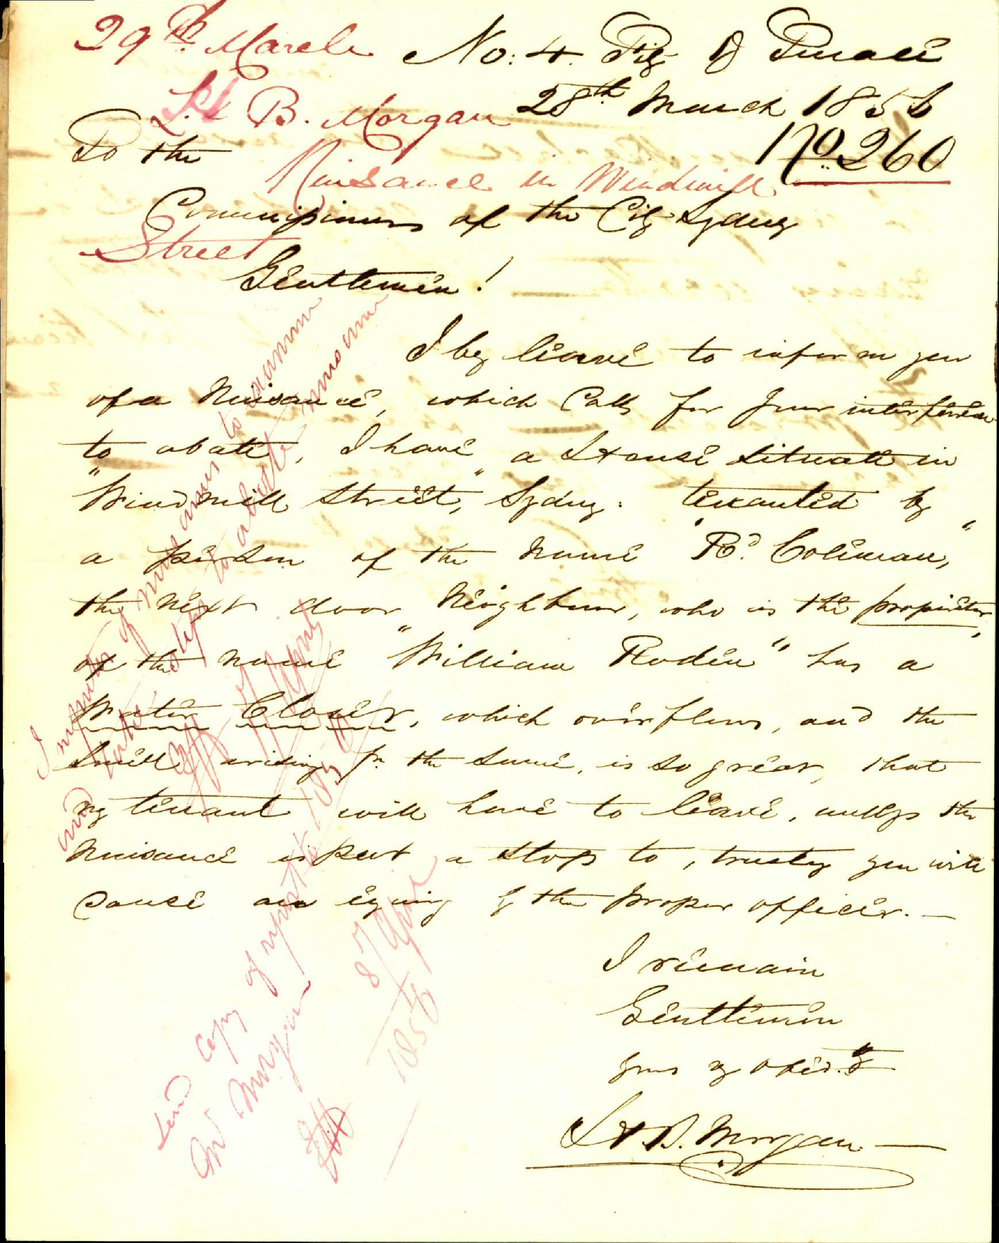 29th March
No: 4
28th March 1856
No 260
B. Morgan
Nuisance in Windmill
Street
To the
Commissioners of the City Sydney
Gentlemen!
I beg leave to inform you
of a Nuisance, which Calls for your interference
to abate, I have a House situate in
"Windmill Street," Sydney. tenanted by
a person of the name "Rd. Coleman,"
the next door Neighbour, who is the proprietor
of the name "William Roden" has a
Water Closet, which overflows, and the
smell arising fm the same, is so great, that
my tenant will have to leave, unless the
Nuisance is put a stop to, trusting you will
cause an enquiry by the proper officer.—
I remain
Gentlemen
Your
B. Morgan
Inspector of nuisances to examine
and to abate nuisance
7 April
1856
Send copy of report to
Mr Morgan
8 April
1856